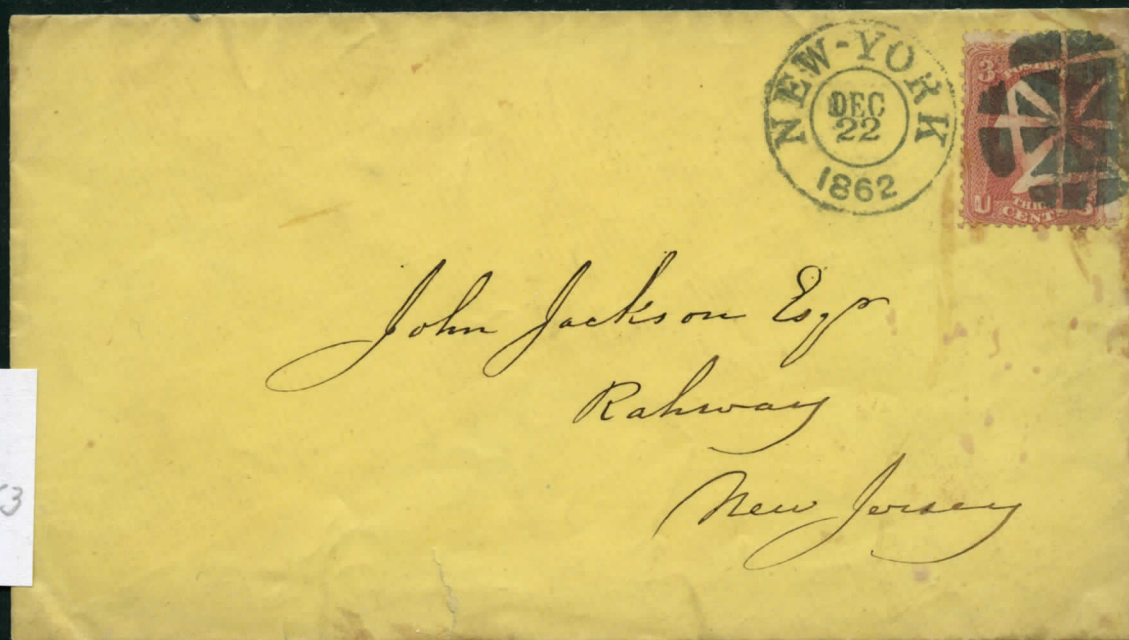 NEW-YORK
DEC
22
1862
3
U
CENTS
John Jackson Esqr
Rahway
New Jersey
3